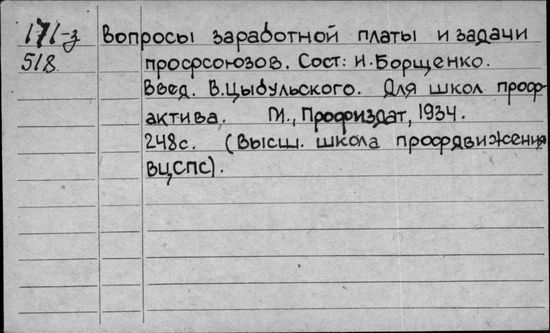 171-з Вопросы заработной платы и задачи
518 профсоюзов. Сост: И. Борщенко.
Введ. В. Цыбульского. Для школ проф-
актива. М., Профиздат, 1934.
248с. (Высш. школа профдвижения
ВЦСПС).